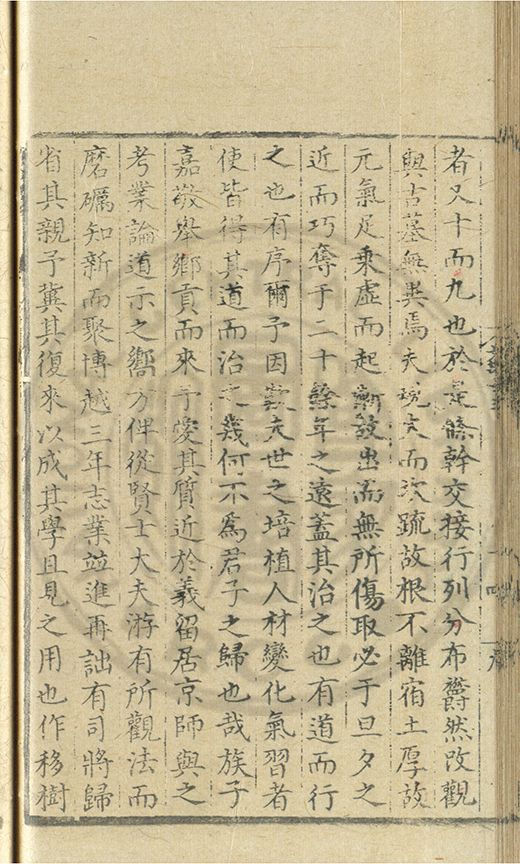 者又十而九也於是條幹交接行列分布欝然改觀
與古墓無異焉夫規大而次疏故根不離宿土厚故
元氣足乘虛而起漸故出而無所傷取必于旦夕之
近而巧奪于二十餘年之遠蓋其治之也有道而行
之也有序爾予因歎夫世之培植人材變化氣習者
使皆得其道而治之幾何不爲君子之歸也哉族子
嘉敬舉鄉貢而來予愛其質近於義留居京師與之
考業論道示之嚮方俾從賢士大夫游有所觀法而
磨礪知新而聚博越三年志業並進再詘有司將歸
省其親予冀其復來以成其學且見之用也作移樹